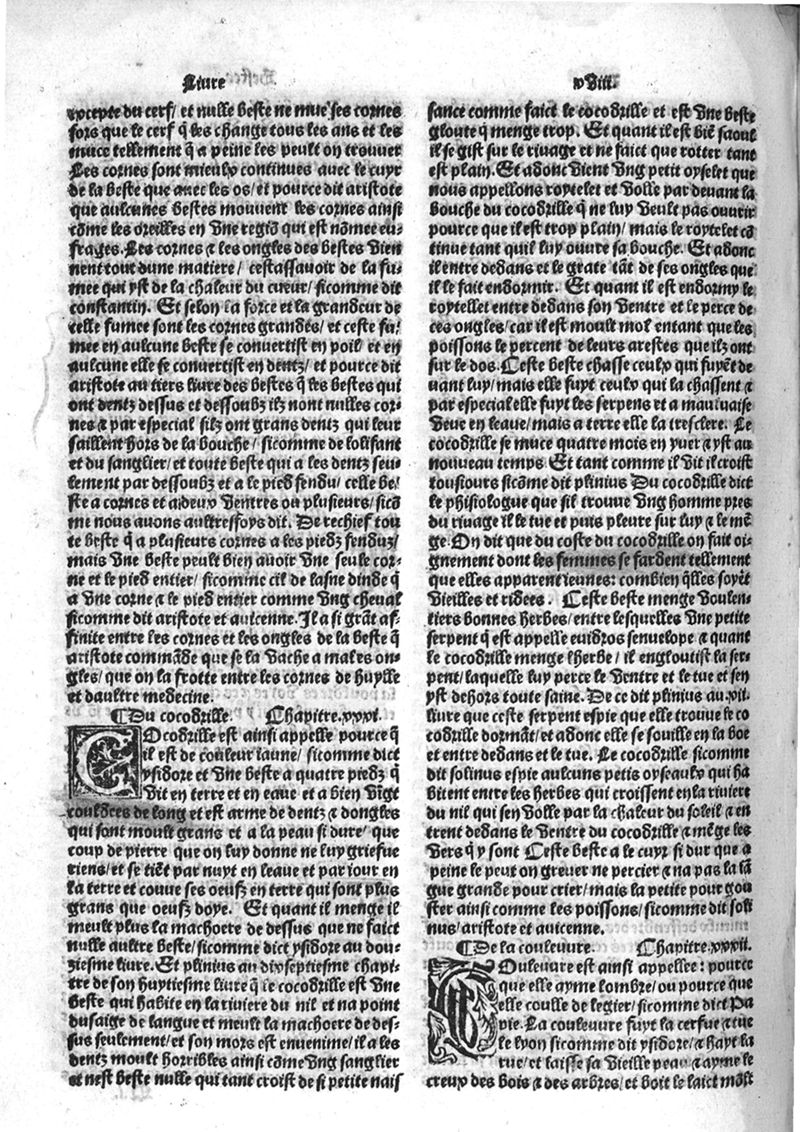 Liure
xViii.
excepte du cerf/ et nulle beste ne mue ses cornes
fors que le cerf q̄ les change tous les ans et les
muce tellement q̄ a peine les peult on trouuer
Les cornes sont mieulx continues auec le cuyr
de la beste que auec les os/ et pource dit aristote
que aulcunes bestes mouuent les cornes ainsi
cōme les oreilles en vne regiō qui est nōmee eu-
frages. Les cornes ⁊ les ongles des bestes vien
nent tout dune matiere/ cestassauoir de la fu-
mee qui yst de la chaleur du cueur/ sicomme dit
constantin. Et selon la force et la grandeur de
celle fumee sont les cornes grandes/ et ceste fu-
mee en aulcune beste se conuertist en poil/ et en
aulcune elle se conuertist en dentz/ et pource dit
aristote au tiers liure des bestes q̄ les bestes qui
ont dentz dessus et dessoubz ilz nont nulles cor-
nes ⁊ par especial silz ont grans dentz qui leur
saillent hors de la bouche/ sicomme de lolifant
et du sanglier/ et toute beste qui a les dentz seu-
lement par dessoubz et a le pied fendu/ celle be-
ste a cornes et a deux ventres ou plusieurs/ sicō
me nous auons aultreffoys dit. De rechief tou
te beste q̄ a plusieurs cornes a les piedz fenduz/
mais vne beste peult bien auoir vne seule cor-
ne et le pied entier/ sicomme cil de lasne dinde q̄
a vne corne ⁊ le pied entier comme vng cheual
sicomme dit aristote et auicenne. Il a si grāt af-
finite entre les cornes et les ongles de la beste q̄
aristote commāde que se la vache a mal es on-
gles/ que on la frotte entre les cornes de huylle
et daultre medecine.
¶Du cocodrille. Chapitre.xxxi.
COcodrille est ainsi appelle pource q̄
il est de couleur iaune/ sicomme dict
ysidore et vne beste a quatre piedz q̄
vit en terre et en eaue et a bien vīgt
couldees de long et est arme de dentz ⁊ dongles
qui sont moult grans et a la peau si dure/ que
coup de pierre que on luy donne ne luy griefue
riens/ et se tiēt par nuyt en leaue et par iour en
la terre et couue ses oeufz en terre qui sont plus
grans que oeufz doye. Et quant il menge il
meult plus la machoere de dessus que ne faict
nulle aultre beste/ sicomme dict ysidore au dou-
ziesme liure. Et plinius au dixseptiesme chapi-
tre de son huytiesme liure q̄ le cocodrille est vne
beste qui habite en la riuiere du nil et na point
dusaige de langue et meult la machoere de des-
sus seulement/ et son mors est enuenime/ il a les
dentz moult horribles ainsi cōme vng sanglier
et nest beste nulle qui tant croist de si petite nais
sance comme faict le cocodrille et est vne beste
gloute q̄ menge trop. Et quant il est biē saoul
il se gist sur le riuage et ne faict que rotter tant
est plain. Et adonc vient vng petit oyselet que
nous appellons roytelet et volle par deuant la
bouche du cocodrille q̄ ne luy veult pas ouurir
pource que il est trop plain/ mais le roytelet cō
tinue tant quil luy ouure sa bouche. Et adonc
il entre dedans et le grate tāt de ses ongles que
il le fait endormir. Et quant il est endormy le
roytellet entre dedans son ventre et le perce de
ces ongles/ car il est moult mol entant que les
poissons le percent de leurs arestes que ilz ont
sur le dos. Ceste beste chasse ceulx qui fuyēt de
uant luy/ mais elle fuyt ceulx qui la chassent ⁊
par especial elle fuyt les serpens et a mauuaise
veue en leaue/ mais a terre elle la tresclere. Le
cocodrille se muce quatre mois en yuer ⁊ yst au
nouueau temps Et tant comme il vit il croist
tousiours sicōme dit plinius Du cocodrille dict
le phisiologue que sil trouue vng homme pres
du riuage il le tue et puis pleure sur luy ⁊ le mē
ge. On dit que du coste du cocodrille on fait oi-
gnement dont les femmes se fardent tellement
que elles apparent ieunes: combien q̄lles soyēt
vieilles et ridees. Ceste beste menge voulen-
tiers bonnes herbes/ entre lesquelles vne petite
serpent q̄ est appelle euidros senuelope ⁊ quant
le cocodrille menge lherbe/ il engloutist la ser-
pent/ laquelle luy perce le ventre et le tue et sen
yst dehors toute saine. De ce dit plinius au.xii.
liure que ceste serpent espie que elle trouue le co
codrille dormāt/ et adonc elle se souille en la boe
et entre dedans et le tue. Le cocodrille sicomme
dit solinus espie aulcuns petis oyseaulx qui ha
bitent entre les herbes qui croissent en la riuiere
du nil qui sen volle par la chaleur du soleil ⁊ en
trent dedans le ventre du cocodrille ⁊ mēge les
vers q̄ y sont Ceste beste a le cuyr si dur que a
peine le peut on greuer ne percier ⁊ na pas la lā
gue grande pour crier/ mais la petite pour gou
ster ainsi comme les poissons/ sicomme dit soli
nus/ aristote et auicenne.
¶De la couleuure. Chapitre.xxxii.
COuleuure est ainsi appellee: pource
que elle ayme lombre/ ou pource que
elle coulle de legier/ sicomme dict Pa
pie. La couleuure fuyt la cerfue ⁊ tue
le lyon sicomme dit ysidore/ ⁊ hayt la
rue/ et laisse sa vieille peau ⁊ ayme le
creux des bois ⁊ des arbres/ et boit le laict mōlt